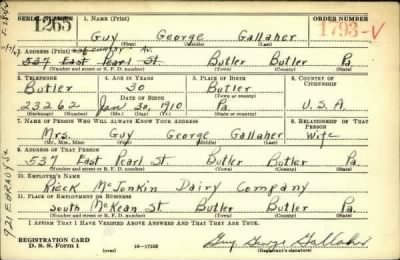 SERIAL NUMBER
1. NAME (Print)
ORDER NUMBER
1265
Guy George Gallaher
1793-V
(First) (Middle) (Last)
2. ADDRESS (Print)
537 East Pearl St. Butler Butler Pa
(Number and street or R. F. D. number) (Town) (County) (State)
3. TELEPHONE
4. AGE IN YEARS
5. PLACE OF BIRTH
6. COUNTRY OF CITIZENSHIP
Butler
30
Butler
(Town or county)
DATE OF BIRTH
23262
Jan 30, 1910
Pa.
U.S.A.
(Exchange) (Number)
(Mo.) (Day) (Yr.)
(State or country)
7. NAME OF PERSON WHO WILL ALWAYS KNOW YOUR ADDRESS
8. RELATIONSHIP OF THAT PERSON
Mrs. Guy George Gallaher Wife
(Mr., Mrs., Miss) (First) (Middle) (Last)
9. ADDRESS OF THAT PERSON
537 East Pearl St. Butler Butler Pa
(Number and street or R. F. D. number) (Town) (County) (State)
10. EMPLOYER'S NAME
Rieck McJunkin Dairy Company
11. PLACE OF EMPLOYMENT OR BUSINESS
South McKean St. Butler Butler Pa
(Number and street or R. F. D. number) (Town) (County) (State)
I AFFIRM THAT I HAVE VERIFIED ABOVE ANSWERS AND THAT THEY ARE TRUE.
REGISTRATION CARD
D. S. S. Form 1
16-17105
Guy George Gallaher
(Registrant's signature)